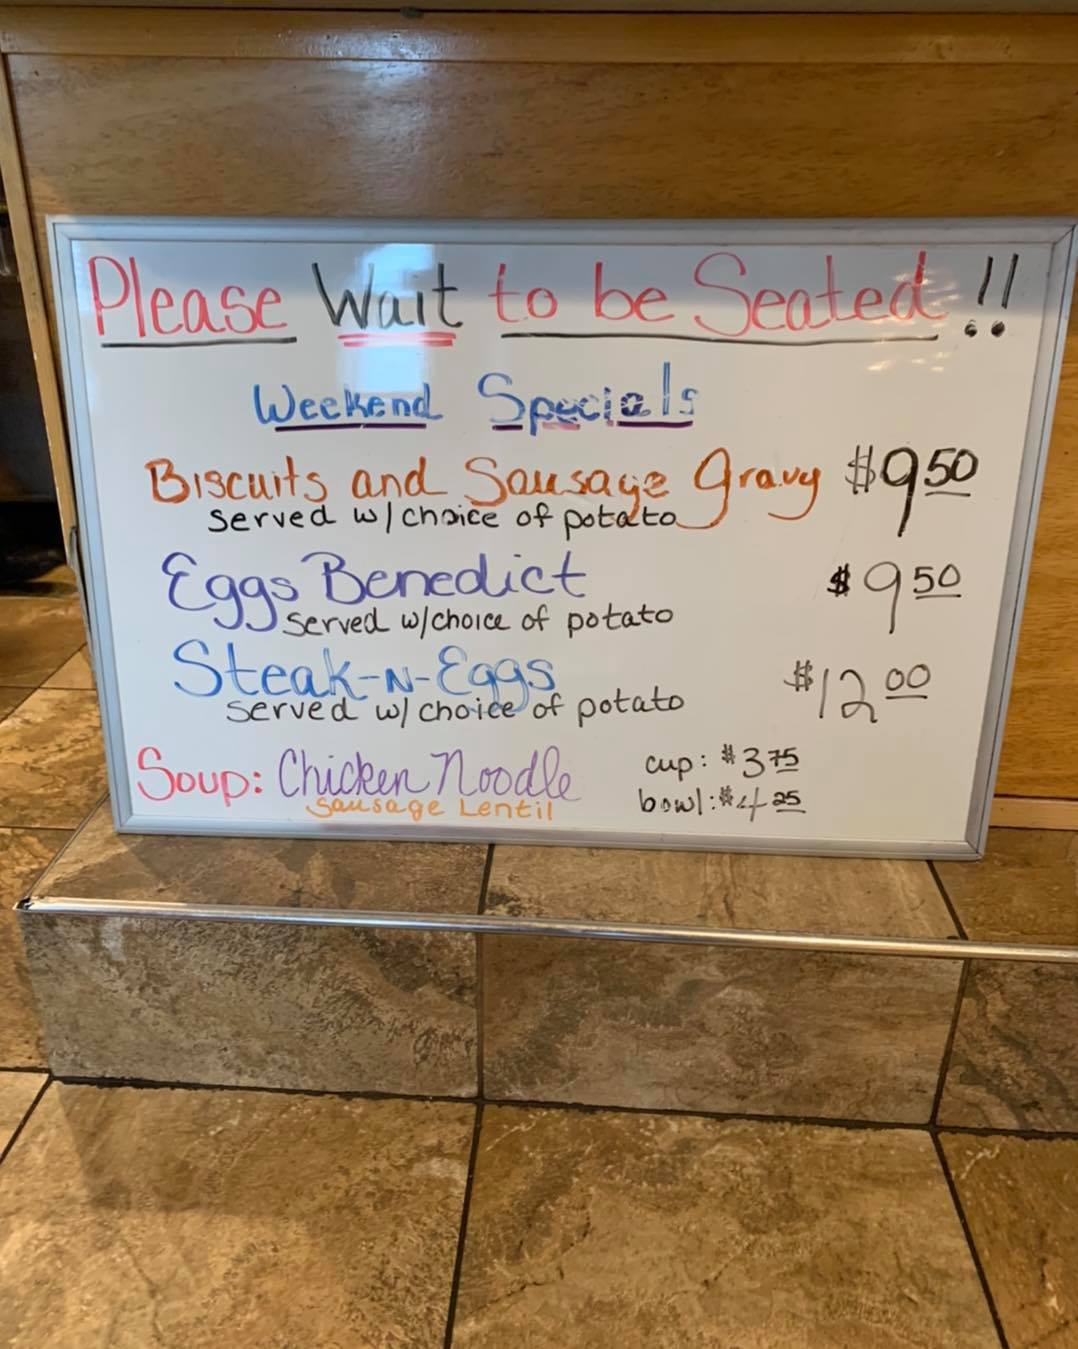 Please Wait to be Seated!!
Weekend Specials
Biscuits and Sausage Gravy $9.50
served w/choice of potato
Eggs Benedict $9.50
served w/choice of potato
Steak-N-Eggs $12.00
served w/choice of potato
Soup: Chicken Noodle cup: $3.75
Sausage Lentil bowl: $4.25